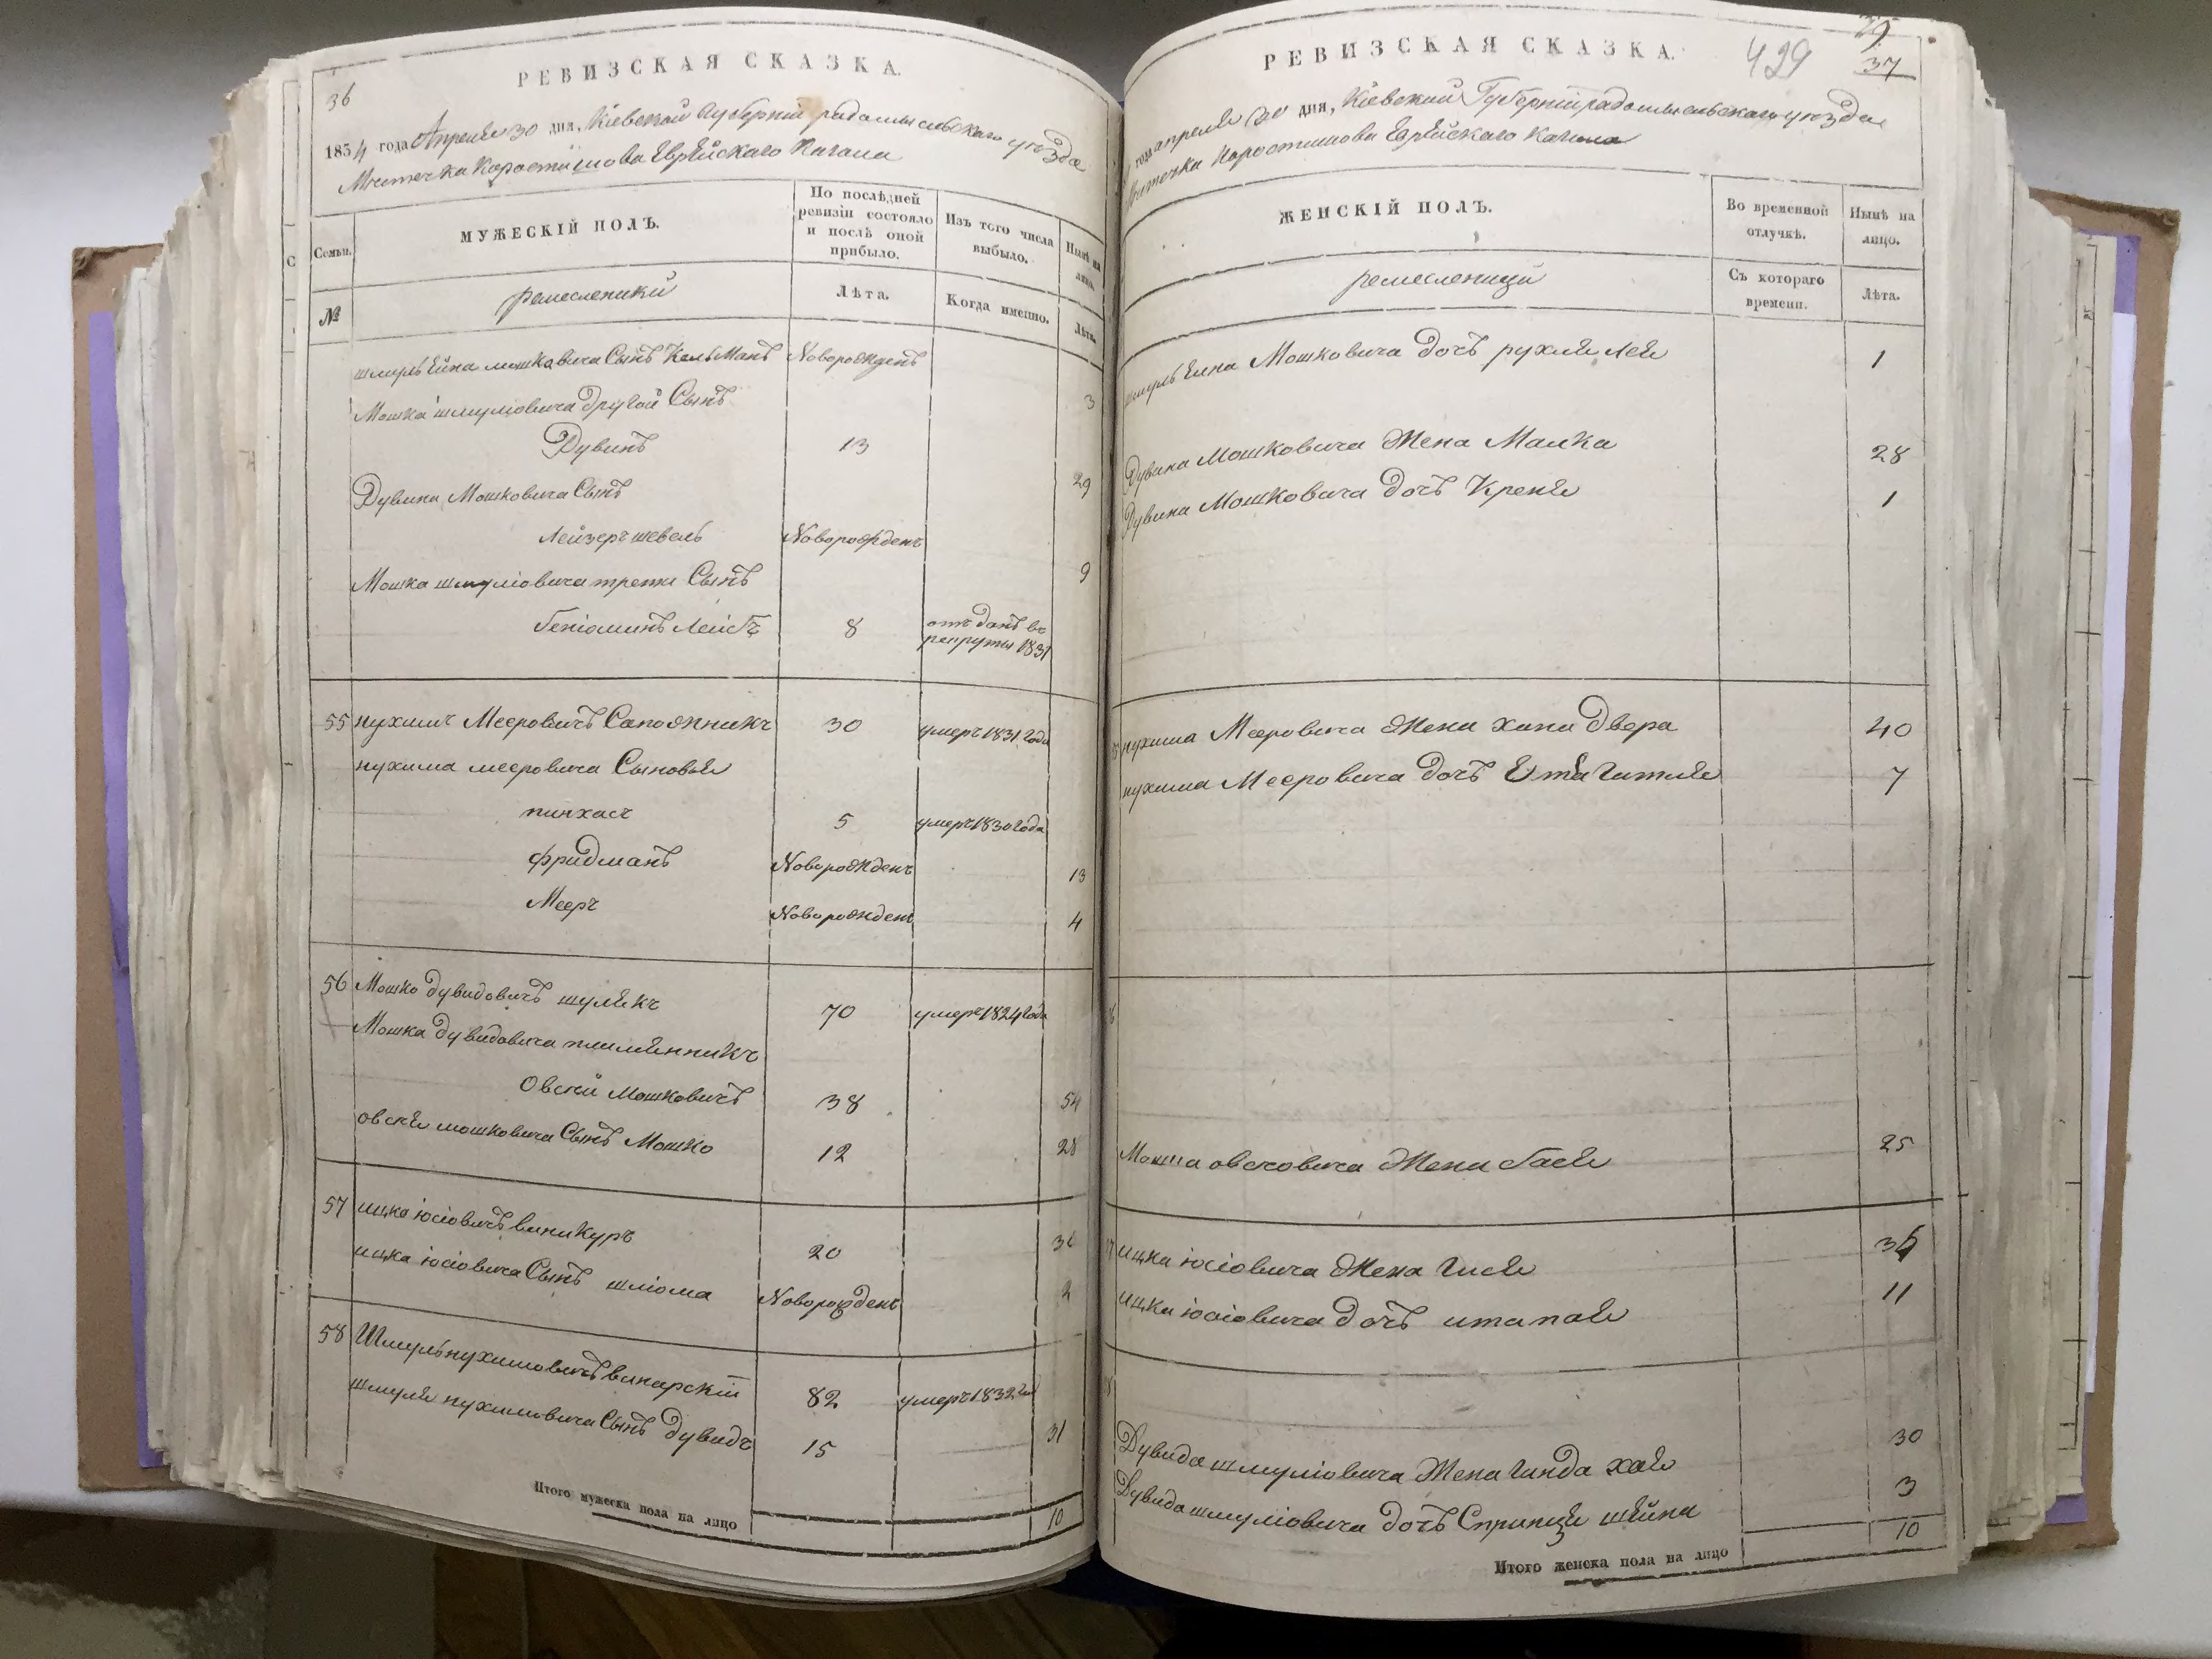 36
РЕВИЗСКАЯ СКАЗКА.
1834 года Апреля 30 дня, Кіевской Губерніи радомысельскаго уѣзда
Мѣстечка Коростишова Еврѣйскаго Кагала
Семьи.
МУЖЕСКІЙ ПОЛЪ.
По послѣдней ревизіи состояло и послѣ оной прибыло.
Изъ того числа выбыло.
Нынѣ на лицо.
№
ремесленики
Лѣта.
Когда именно.
Лѣта.
шмуль Ейна мошковича Сынъ Кельманъ Новорожденъ 3
Мошка шмуліовича другой Сынъ
Дувинъ 13 29
Дувина Мошковича Сынъ
Лейзеръ шевель Новорожденъ 9
Мошка шмуліовича трети Сынъ
Беніоминъ Лейбъ 8 отъ данъ въ
рекруты 1831
55 нухимъ Мееровичъ Сапожникъ 30 умеръ 1831 года
нухима мееровича Сыновья
пинхасъ 5 умеръ 1830 года
фридманъ Новорожденъ 13
Мееръ Новорожденъ 4
56 Мошко дувидовичъ шулякъ 70 умеръ 1824 года
Мошка дувидовича племянникъ
Овсѣй Мошковичъ 38 54
овсѣя мошковича Сынъ Мошко 12 28
57 ицко іосіовичъ виникуръ 20 36
ицка іосіовича Сынъ шліома Новорожденъ 2
58 Шмуль нухимовичъ винарскій 82 умеръ 1832
шмуля нухимовича Сынъ дувидъ 15 31
Итого мужеска пола на лицо 10
РЕВИЗСКАЯ СКАЗКА.
429
37
года апреля 30 дня, Кіевской Губерніи радомысельскаго уѣзда
Мѣстечка Коростишова Еврѣйскаго Кагала
ЖЕНСКІЙ ПОЛЪ.
Во временной отлучкѣ.
Нынѣ на лицо.
ремесленици
Съ котораго времени.
Лѣта.
шмуль Елна Мошковича дочъ рухля лея 1
Дувина Мошковича Жена Малка 28
Дувина Мошковича дочъ Креня 1
нухима Мееровича Жена хана двера 40
нухима Мееровича дочъ Ета гитля 7
Мошка овсеовича Жена бася 25
ицка іосіовича Жена гися 36
ицка іосіовича дочъ ита пая 11
Дувида шмуліовича Жена гинда хая 30
Дувида шмуліовича дочъ Спринця шейна 3
Итого женска пола на лицо 10